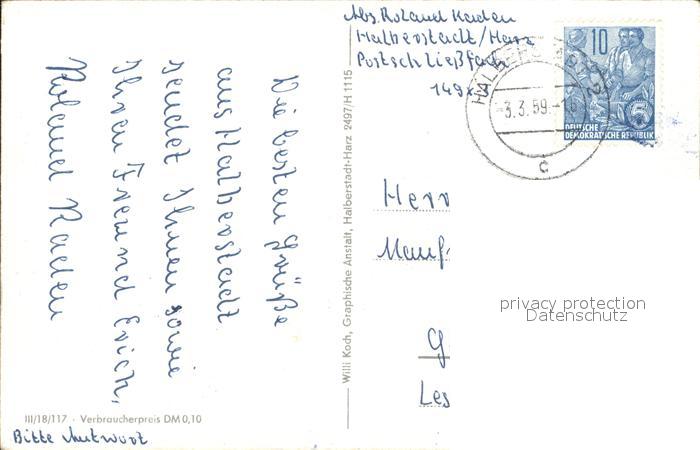 Abs. Roland Kaden
Halberstadt/Harz
Postschließfach
149
HALBERSTADT 2
3.3.59.-16
c
10
5
DEUTSCHE
DEMOKRATISCHE REPUBLIK
Die besten Grüße
aus Halberstadt
sendet Ihnen sowie
Ihren Freund Erich,
Roland Kaden
Willi Koch, Graphische Anstalt, Halberstadt-Harz 2497/H 1115
Herr
Manf
G
Les
privacy protection
Datenschutz
III/18/117 · Verbraucherpreis DM 0,10
Bitte Antwort